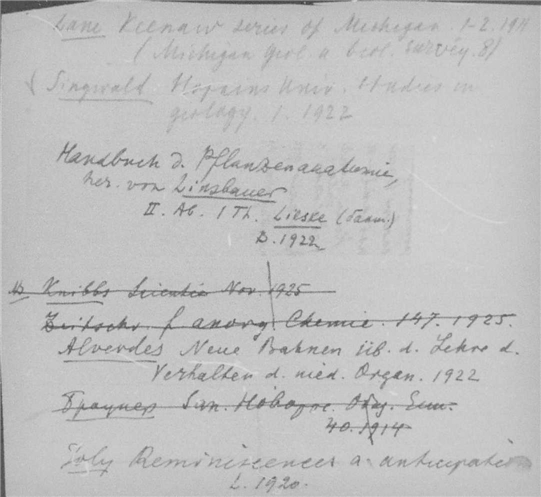 Lane Keenaw series of Michigan. 1-2. 1911
(Michigan Geol. a. biol. survey. 8)
Singwald. Hopkins Univ. Studies in
geology. 1. 1922
Handbuch d. Pflanzenanatomie,
her. von Linsbauer
II. Ab. 1 Th. Lieske
B. 1922
Knibbs Scientia Nov. 1925
Zeitschr. f. anorg. Chemie. 147. 1925.
Alverdes Neue Bahnen üb. d. Lehre d.
Verhalten d. nied. Organ. 1922
Браунер Зап. Новорос. Общ. Ест.
40. 1914
Joly Reminiscences a. anticipatio
L. 1920.